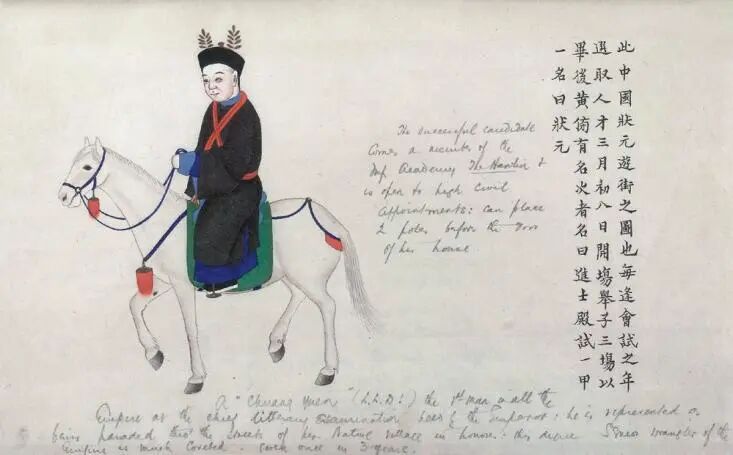 此中國狀元遊街之圖也每逢會試之年
選取人才三月初八日開塲舉子三塲以
畢後黃傍有名次者名曰進士殿試一甲
一名曰狀元
The successful candidate
Comes a member of the
Imp Academy The Hanlin &
is open to high civil
Appointments: can place
2 poles before the door
of his house.
A "Chuang Yuen" (L.L.D.!) the 1st man in all the
Empire at the chief literary Examination held by the Emperor: he is represented as
being paraded thro' the streets of his Native village in honour: this degree Senior wrangler of the
Empire is much coveted. once in 3 years.